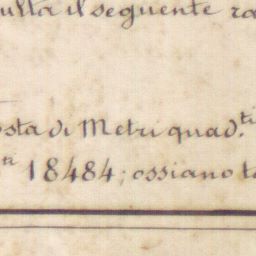 ulta il seguente ra
osta di Metri quad.ti
ti 18484; ossiano t